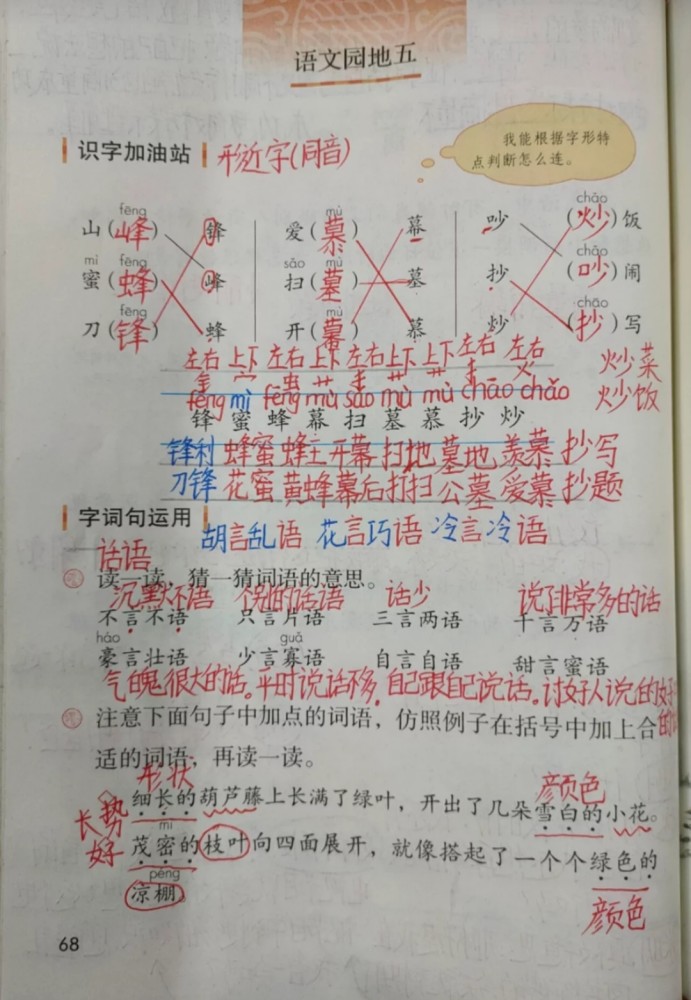 语文园地五
识字加油站 形近字(同音)
我能根据字形特
点判断怎么连。
fēng mù chǎo
山(峰) 锋 爱(慕) 幕 吵 (炒)饭
mì fēng sǎo mù chǎo
蜜(蜂) 峰 扫(墓) 墓 抄 (吵)闹
fēng mù chāo
刀(锋) 蜂 开(幕) 慕 炒 (抄)写
左右 上下 左右 上下 左右 上下 上下 左右 左右
炒菜
钅 宀 虫 艹 扌 土 艹 扌 火
炒饭
fēng mì fēng mù sǎo mù mù chāo chǎo
锋 蜜 蜂 幕 扫 墓 慕 抄 炒
锋利 蜂蜜 蜂王 开幕 扫地 墓地 羡慕 抄写
刀锋 花蜜 黄蜂 幕后 打扫 公墓 爱慕 抄题
字词句运用
胡言乱语 花言巧语 冷言冷语
话语
读一读,猜一猜词语的意思。
沉默不语 个别的话语 话少 说了非常多的话
不言不语 只言片语 三言两语 千言万语
háo guǎ
豪言壮语 少言寡语 自言自语 甜言蜜语
气魄很大的话。平时说话不多。自己跟自己说话。讨好人说的好
注意下面句子中加点的词语,仿照例子在括号中加上合
适的词语,再读一读。
形状 颜色
细长的葫芦藤上长满了绿叶,开出了几朵雪白的小花。
长势
好
mì
茂密的枝叶向四面展开,就像搭起了一个个绿色的
péng
凉棚
颜色
68